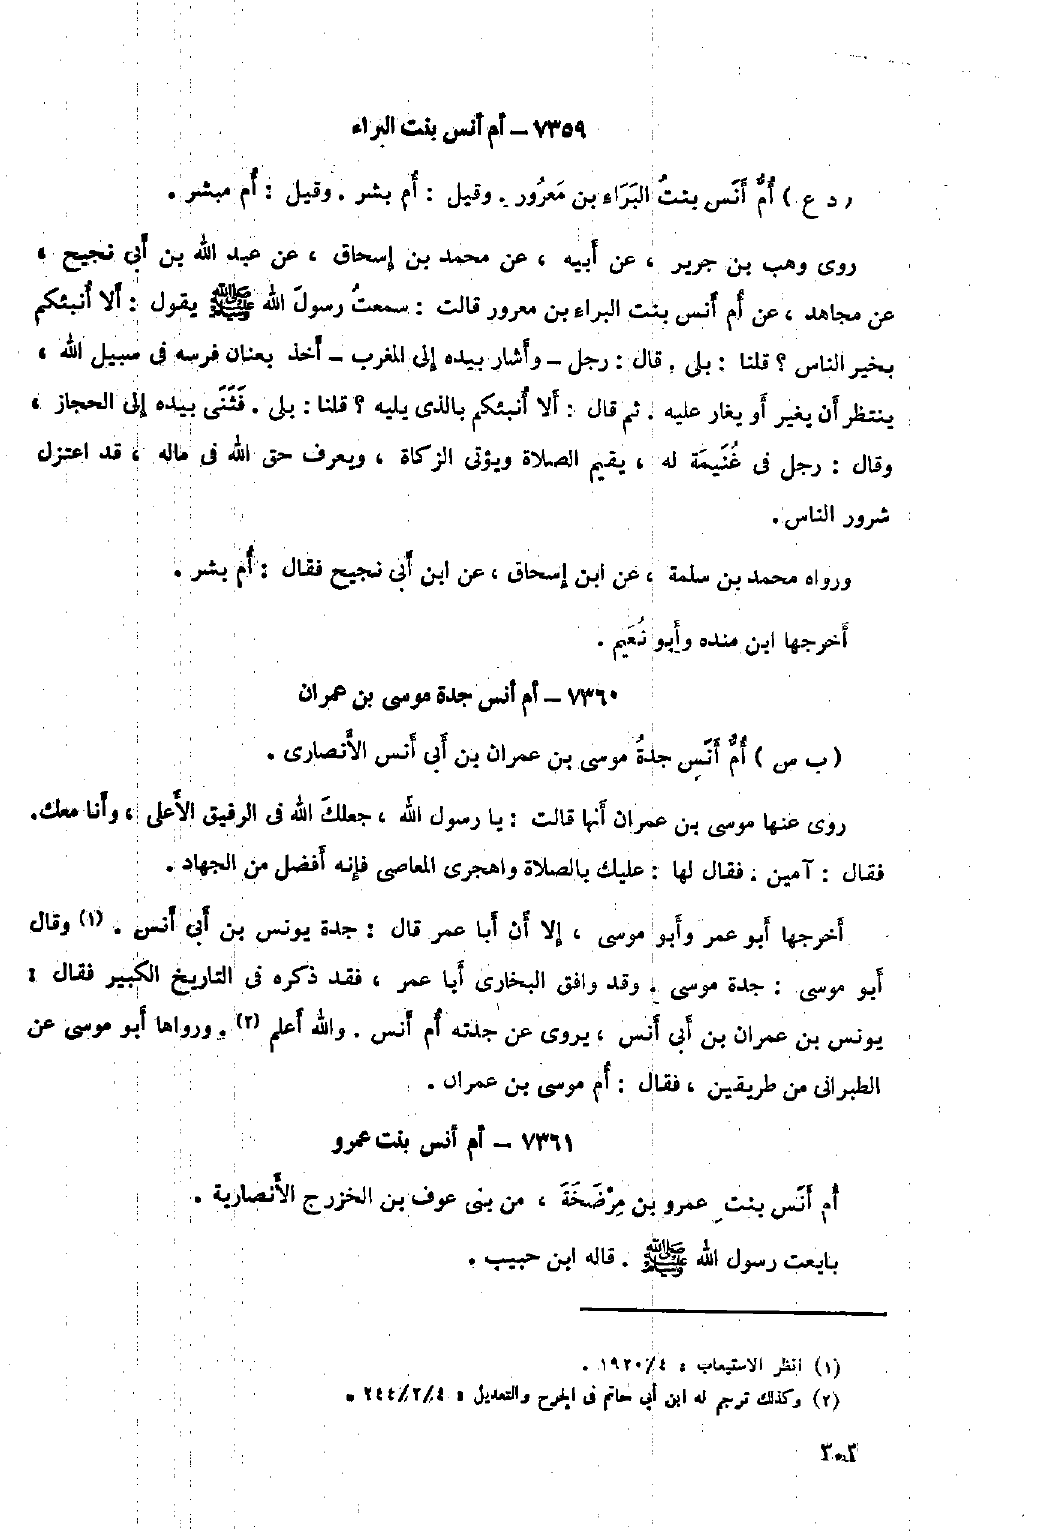 ٧٣٥٩ – أم أنس بنت البراء
( د ع ) أُمُّ أَنَس بنتُ البَرَاء بن مَعرُور . وقيل : أُم بشر . وقيل : أُم مبشر .
روى وهب بن جرير ، عن أَبيه ، عن محمد بن إسحاق ، عن عبد الله بن أَبى نجيح ،
عن مجاهد ، عن أُم أَنس بنت البراء بن معرور قالت : سمعتُ رسولَ الله ﷺ يقول : أَلا أُنبئكم
بخير الناس ؟ قلنا : بلى . قال : رجل – وأَشار بيده إلى المغرب – أَخذ بعنان فرسه فى سبيل الله ،
ينتظر أَن يغير أَو يغار عليه . ثم قال : أَلا أُنبئكم بالذى يليه ؟ قلنا : بلى . فَثَنَى بيده إلى الحجاز ،
وقال : رجل فى غُنَيمَة له ، يقيم الصلاة ويؤتى الزكاة ، ويعرف حق الله فى ماله ، قد اعتزل
شرور الناس .
ورواه محمد بن سلمة ، عن ابن إسحاق ، عن ابن أَبى نجيح فقال : أُم بشر .
أَخرجها ابن منده وأَبو نُعَيم .
٧٣٦٠ – أم أنس جدة موسى بن عمران
( ب س ) أُمُّ أَنَس جدةُ موسى بن عمران بن أَبى أَنس الأَنصارى .
روى عنها موسى بن عمران أَنها قالت : يا رسول الله ، جعلكَ الله فى الرفيق الأَعلى ، وأَنا معك .
فقال : آمين . فقال لها : عليك بالصلاة واهجرى المعاصى فإنه أَفضل من الجهاد .
أَخرجها أَبو عمر وأَبو موسى ، إلا أَن أَبا عمر قال : جدة يونس بن أَبى أَنس . (١) وقال
أَبو موسى : جدة موسى . وقد وافق البخارى أَبا عمر ، فقد ذكره فى التاريخ الكبير فقال :
يونس بن عمران بن أَبى أَنس ، يروى عن جدته أُم أَنس . والله أَعلم (٢) . ورواها أَبو موسى عن
الطبرانى من طريقين ، فقال : أُم موسى بن عمران .
٧٣٦١ – أم أنس بنت عمرو
أُم أَنَس بنت عمرو بن مِرْضَخَةَ ، من بنى عوف بن الخزرج الأَنصارية .
بايعت رسول الله ﷺ . قاله ابن حبيب .
(١) انظر الاستيعاب : ١٩٢٠/٤ .
(٢) وكذلك ترجم له ابن أبى حاتم فى الجرح والتعديل : ٢٤٤/٢/٤ .
٣٠٢